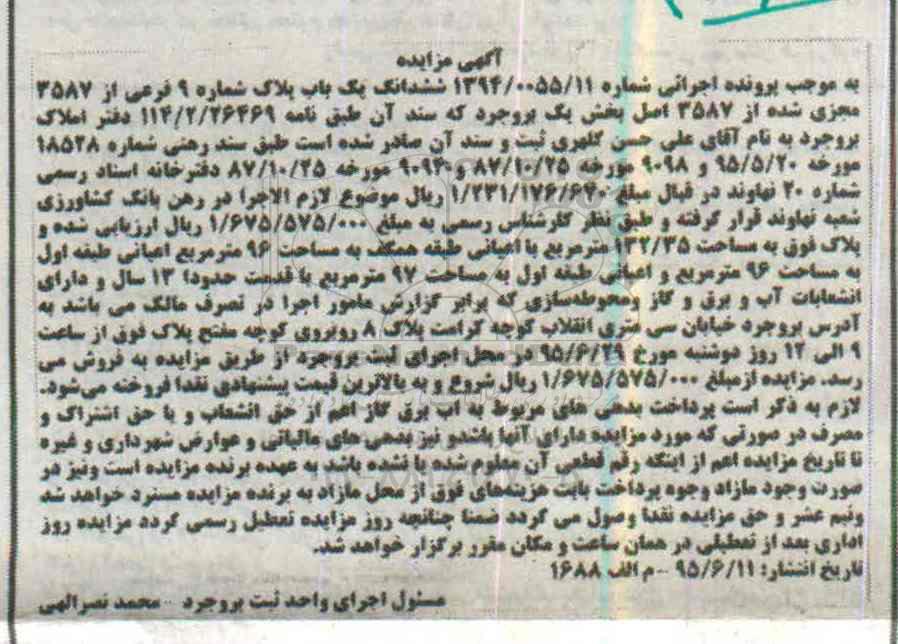 آگهی مزایده
به موجب پرونده اجرائی شماره 1394/0055/11 ششدانگ یک باب پلاک شماره 9 فرعی از 3587
مجزی شده از 3587 اصل بخش یک بروجرد که سند آن طبق نامه 114/2/26469 دفتر املاک
بروجرد به نام آقای علی حسن گلهری ثبت و سند آن صادر شده است طبق سند رهنی شماره 18528
مورخه 95/5/20 و 9098 مورخه 87/10/25 و 9094 مورخه 87/10/25 دفترخانه اسناد رسمی
شماره 20 نهاوند در قبال مبلغ 1/231/176/640 ریال موضوع لازم الاجرا در رهن بانک کشاورزی
شعبه نهاوند قرار گرفته و طبق نظر کارشناس رسمی به مبلغ 1/675/575/000 ریال ارزیابی شده و
پلاک فوق به مساحت 132/35 مترمربع با اعیانی طبقه همکف به مساحت 96 مترمربع اعیانی طبقه اول
به مساحت 96 مترمربع و اعیانی طبقه اول به مساحت 97 مترمربع با قدمت حدودا 13 سال و دارای
انشعابات آب و برق و گاز ومحوطه‌سازی که برابر گزارش مامور اجرا در تصرف مالک می باشد به
آدرس بروجرد خیابان سی متری انقلاب کوچه کرامت پلاک 8 روبروی کوچه مفتح پلاک فوق از ساعت
9 الی 12 روز دوشنبه مورخ 95/6/29 در محل اجرای ثبت بروجرد از طریق مزایده به فروش می
رسد. مزایده ازمبلغ 1/675/575/000 ریال شروع و به بالاترین قیمت پیشنهادی نقدا فروخته می‌شود.
لازم به ذکر است پرداخت بدهی های مربوط به اب برق گاز اعم از حق انشعاب و یا حق اشتراک و
مصرف در صورتی که مورد مزایده دارای آنها باشدو نیز بدهی های مالیاتی و عوارض شهرداری و غیره
تا تاریخ مزایده اعم از اینکه رقم قطعی آن معلوم شده یا نشده باشد به عهده برنده مزایده است ونیز در
صورت وجود مازاد وجوه پرداخت بابت هزینه‌های فوق از محل مازاد به برنده مزایده مسترد خواهد شد
ونیم عشر و حق مزایده نقدا وصول می گردد ضمنا چنانچه روز مزایده تعطیل رسمی گردد مزایده روز
اداری بعد از تعطیلی در همان ساعت و مکان مقرر برگزار خواهد شد.
تاریخ انتشار: 95/6/11 -- م الف 1688
مسئول اجرای واحد ثبت بروجرد -- محمد نصرالهی